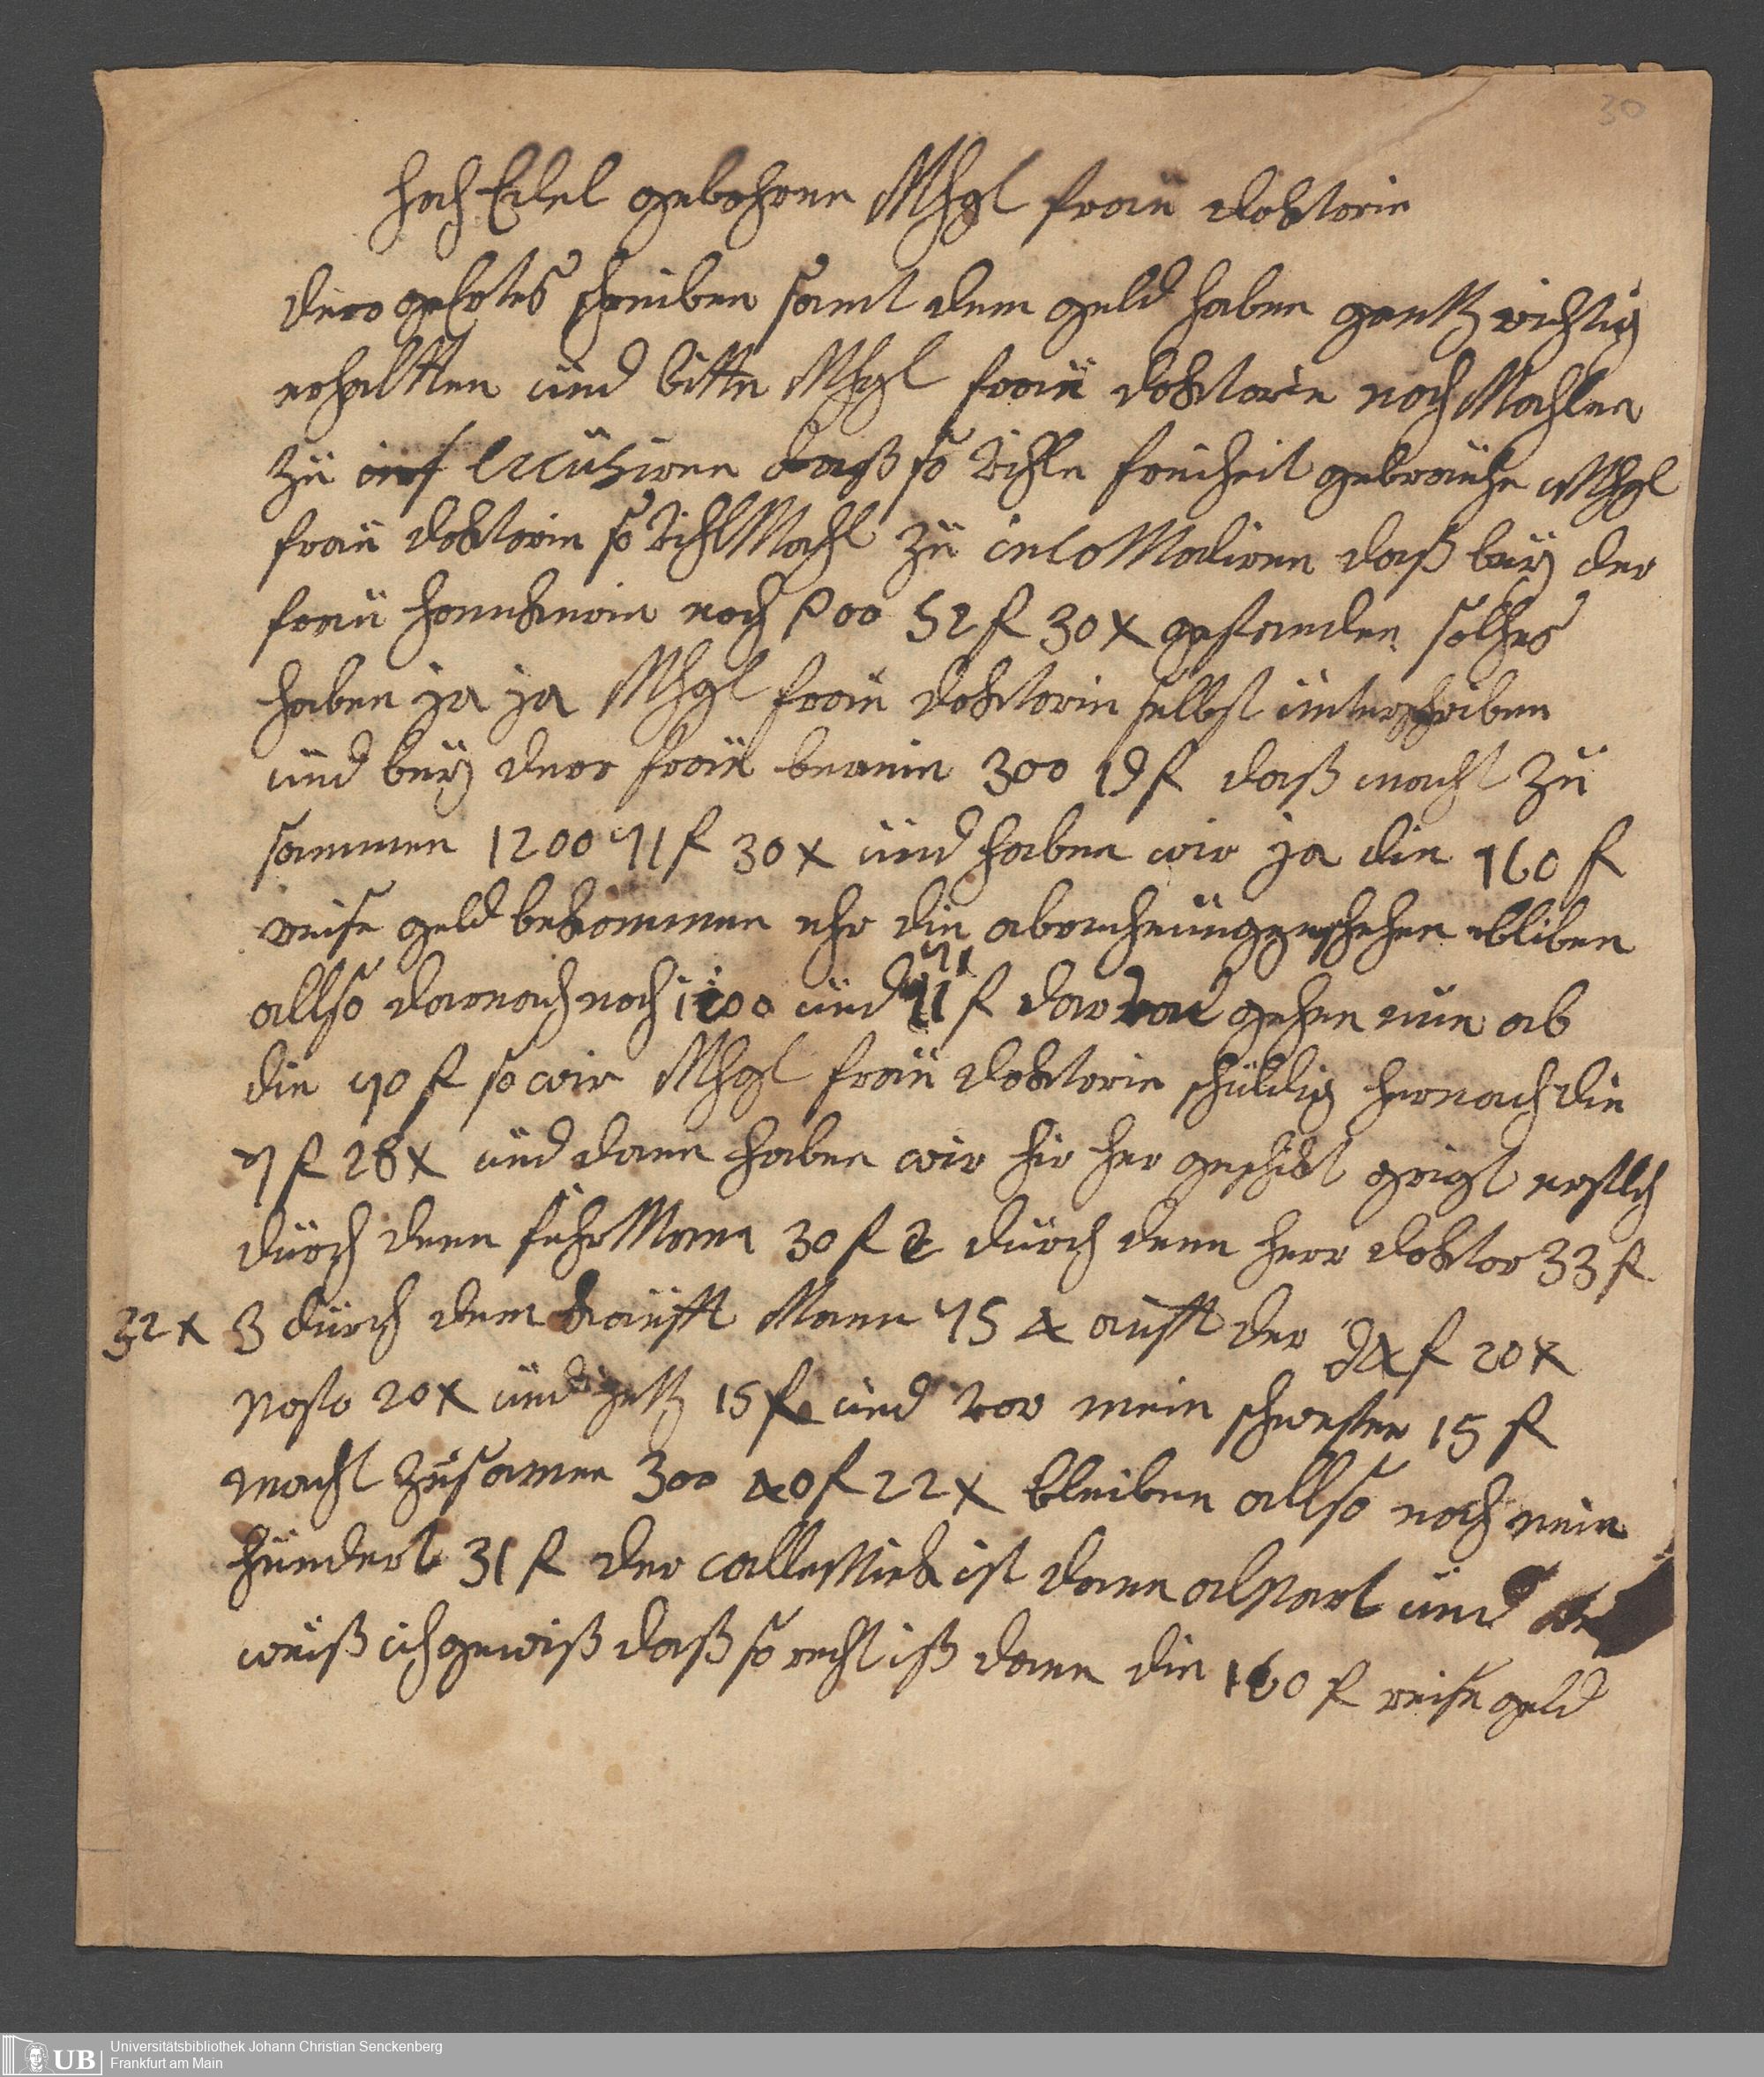 30
hoch Edel gebohrne Mhgl frau doktorin
dero geehrtes schreiben samt dem geld habe gantz richtig
erhaltten und bitte Mhgl frau doktorin noch Mahlen
zu excusiren daß so vihle freiheit gebrauche Mhgl
frau doktorin so vihl Mahl zu incoMadiren daß beÿ der
frau noch 52 f 30 x gestanden solches
haben ja ja Mhgl frau doktorin selbst unterschriben
und beÿ derr frau 300 19 f daß macht zu
sammen 1200 71 f 30 x und haben wir ja die 160 f
reise geld bekommen ehr die abrechnung geschehen bliben
allso darnach noch und 71 f dar gehen nun ab
die 90 f so wir Mhgl frau doktorin schuldig hernach die
7 f 28 x und dann haben wir hir her geschikt erstlich
durch denn fuhrMann 30 f 2 durch denn herr doktor 33 f
32 x 3 durch dem kaufft Mann 75 4 aufft der 94 f 20 x
post 20 x und jetz 15 f und vor mein schwester 15 f
macht zusamen 300 40 f 22 x bleiben allso noch nein
hundert 31 f der ist dann und
weiß ich gewiß daß so recht iß dann die 160 f reise geld
UB
Universitätsbibliothek Johann Christian Senckenberg
Frankfurt am Main